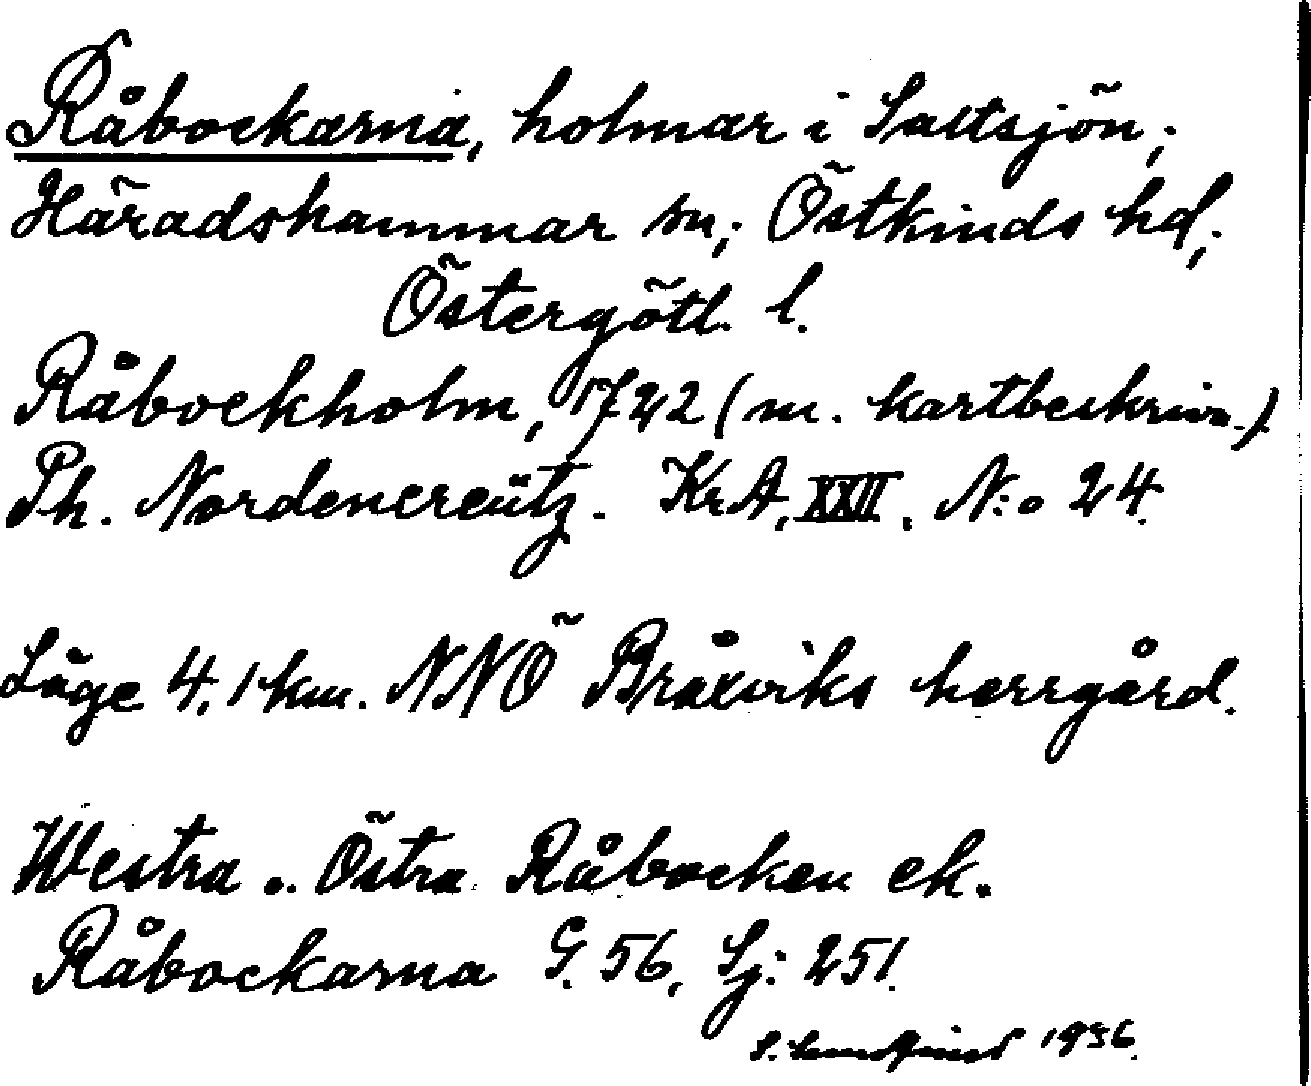 Råbockarna, holmar i Saltsjön;
Häradshammar sn; Östkinds hd;
Östergötl. l.
Råbockholm, 1722 (m. kartbeskrivn.)
Ph. Nordencreütz. KrA, XXII, N:o 24.
Läge 4,1 km. NNÖ Bråxviks herrgård.
Westra o. Östra Råbocken ek.
Råbockarna G. 56, Sj: 251.
1936.